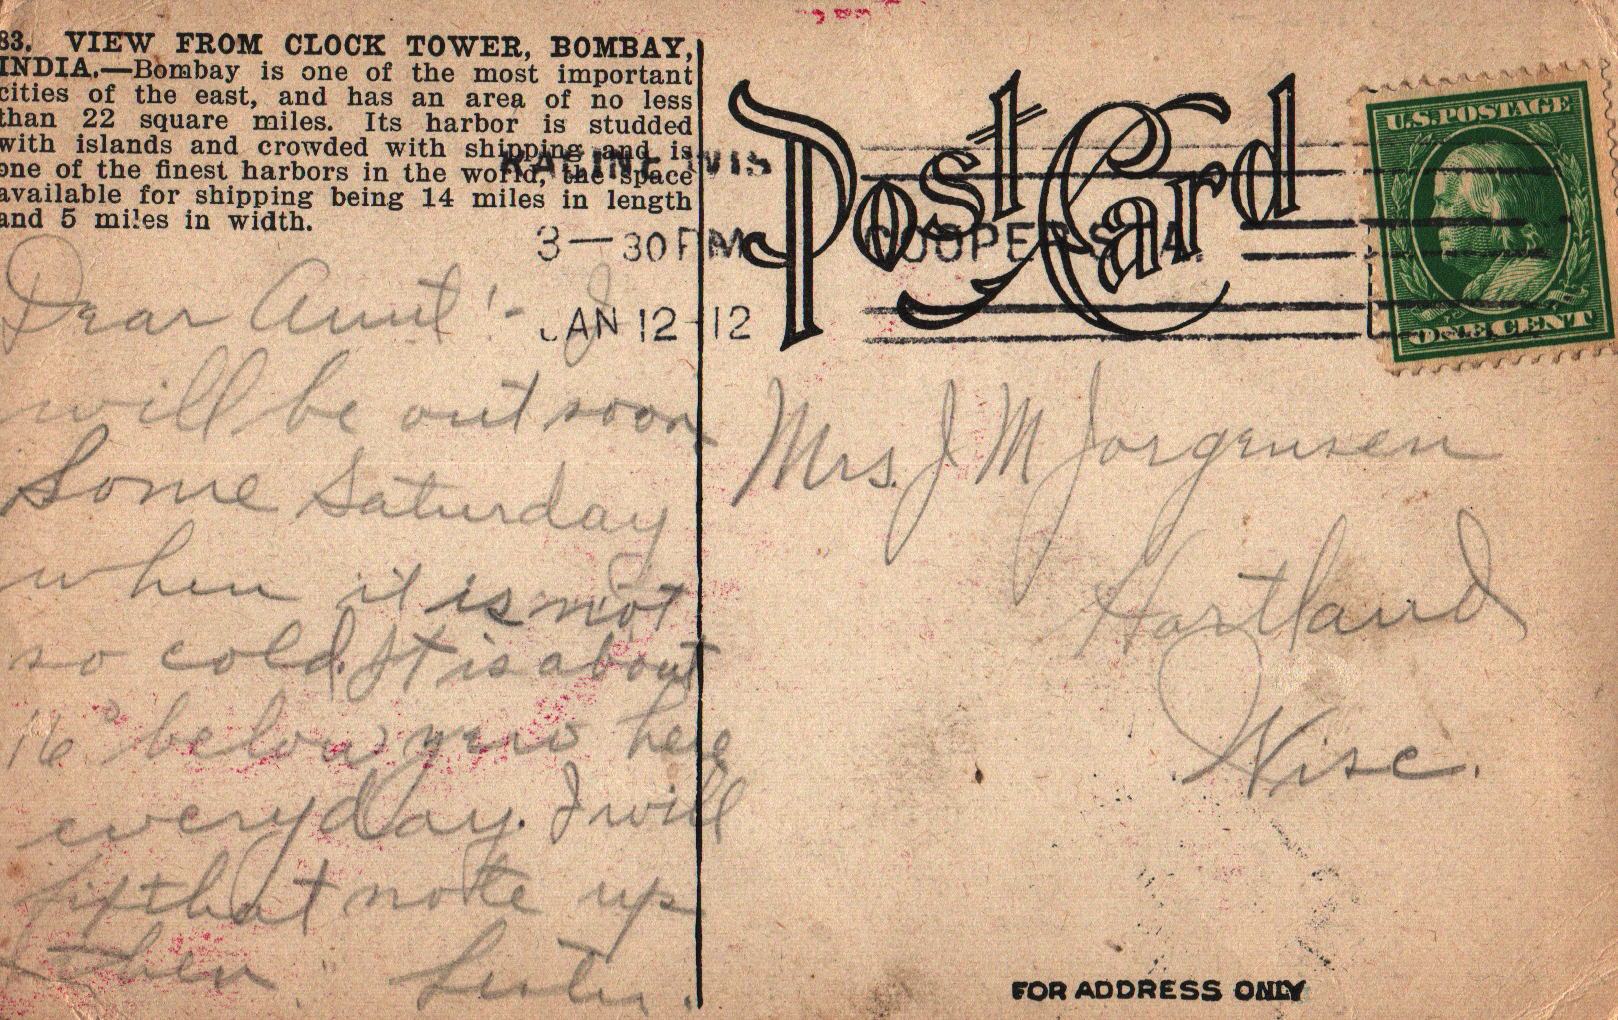 83. VIEW FROM CLOCK TOWER, BOMBAY,
INDIA.—Bombay is one of the most important
cities of the east, and has an area of no less
than 22 square miles. Its harbor is studded
with islands and crowded with shipping and is
one of the finest harbors in the world, the space
available for shipping being 14 miles in length
and 5 miles in width.
Post Card
U.S. POSTAGE
ONE CENT
RACINE WIS
3—30 PM
JAN 12-12
COOPER
Dear Aunt!- I
will be out soon
Some Saturday
when it is not
so cold. It is about
16° below here
everyday. I will
fix that note up
then.
Mrs. J M Jorgensen
Hartland
Wisc.
FOR ADDRESS ONLY